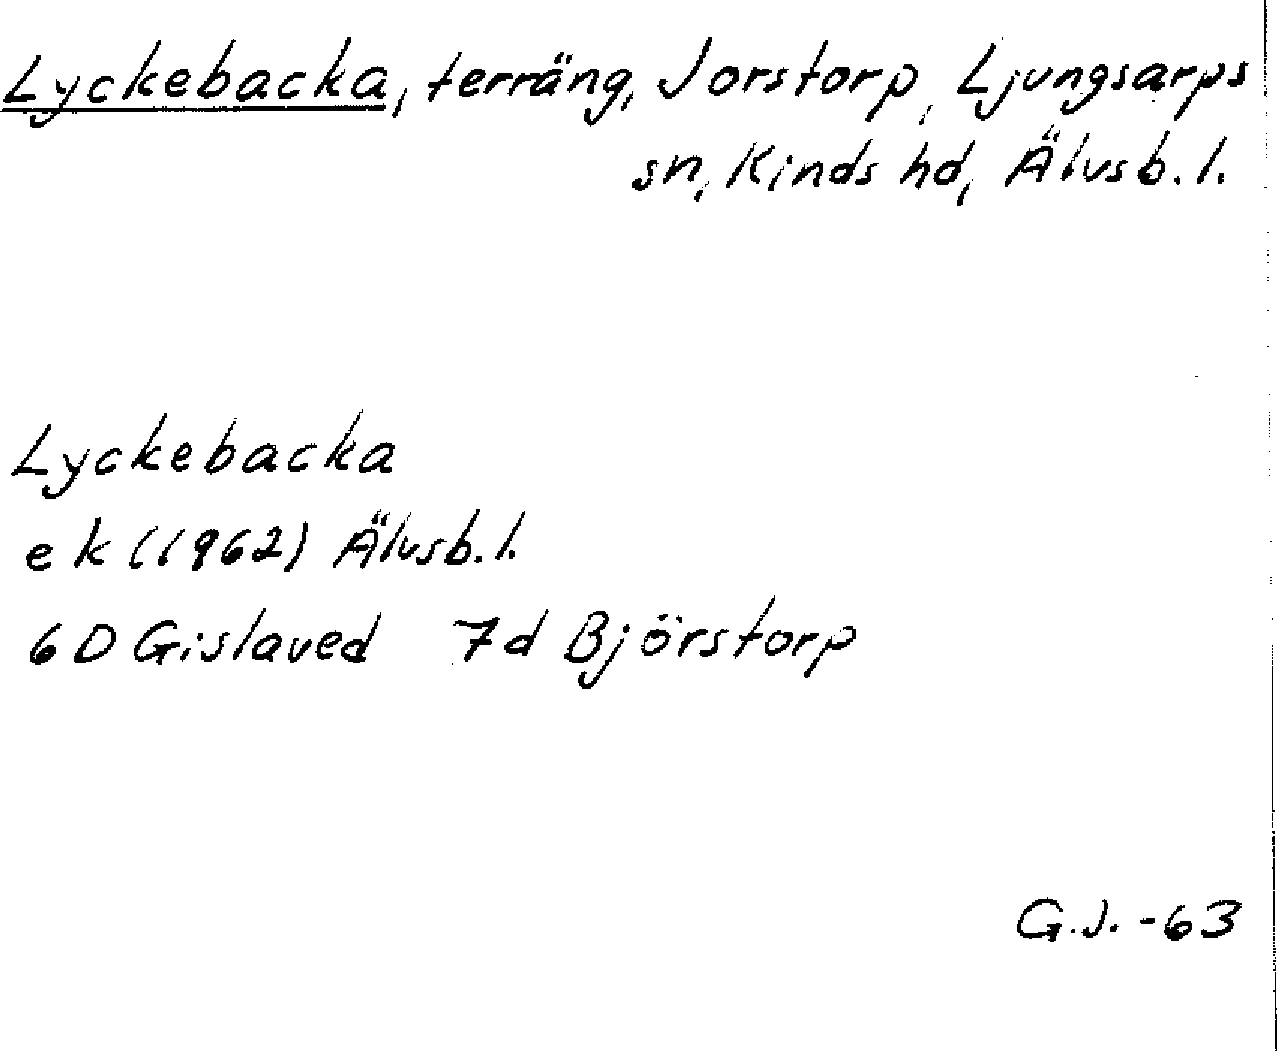 Lyckebacka, terräng, Jorstorp, Ljungsarps
sn, Kinds hd, Älvsb. l.
Lyckebacka
ek (1962) Älvsb. l.
6D Gislaved 7d Björstorp
G.J. -63